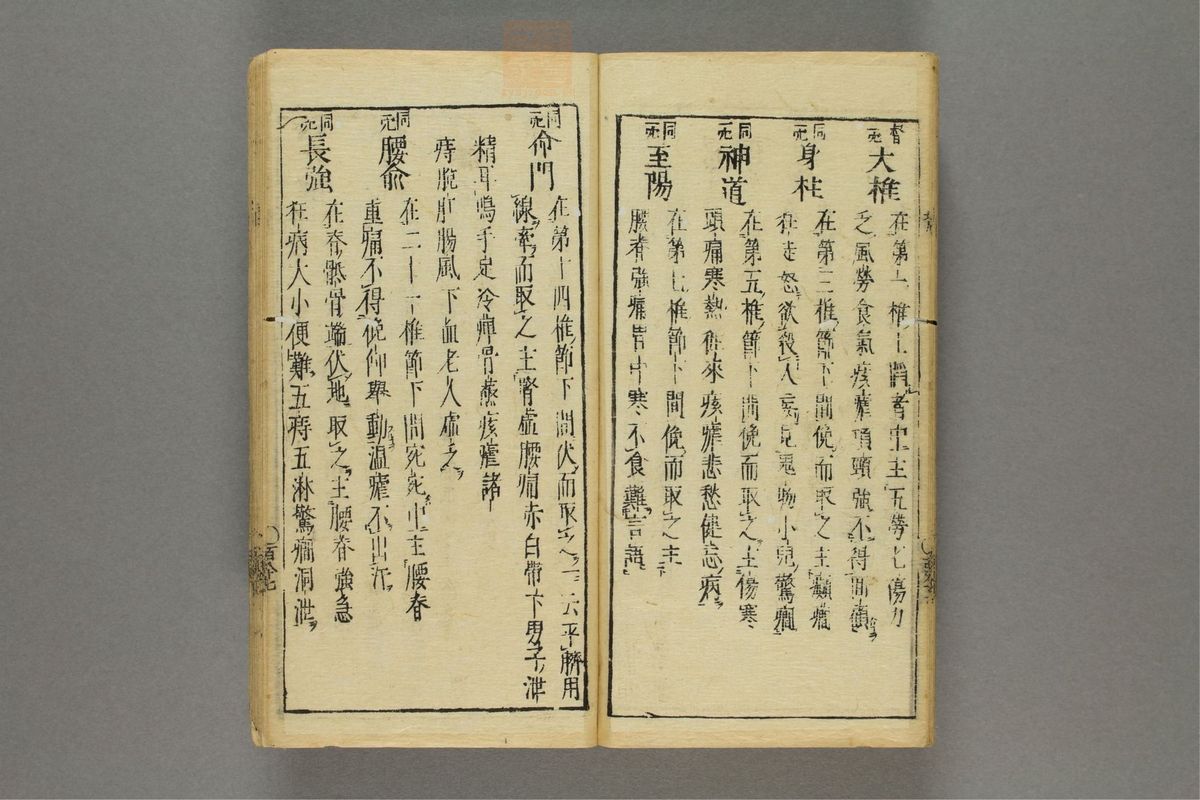 督
穴
大椎
在第一椎上陷者中主五勞七傷力
乏風勞食氣痎瘧項頸強不得回顧
同
穴
身柱
在第三椎節下間俛而取之主癲癇
狂走怒欲殺人妄見鬼物小兒驚癇
同
穴
神道
在第五椎節下間俛而取之主傷寒
頭痛寒熱往來痎瘧悲愁健忘病
同
穴
至陽
在第七椎節下間俛而取之主
腰脊強痛胃中寒不食難言語
同
穴
命門
在第十四椎節下間伏而取之一云平臍用
線牽而取之主腎虛腰痛赤白帶下男子泄
精耳鳴手足冷痺骨蒸痎瘧諸
痔脫肛腸風下血老人虛乏
同
穴
腰俞
在二十一椎節下間宛宛中主腰脊
重痛不得俛仰舉動溫瘧不出汗
同
穴
長強
在脊骶骨端伏地取之主腰脊強急
狂病大小便難五痔五淋驚癇洞泄